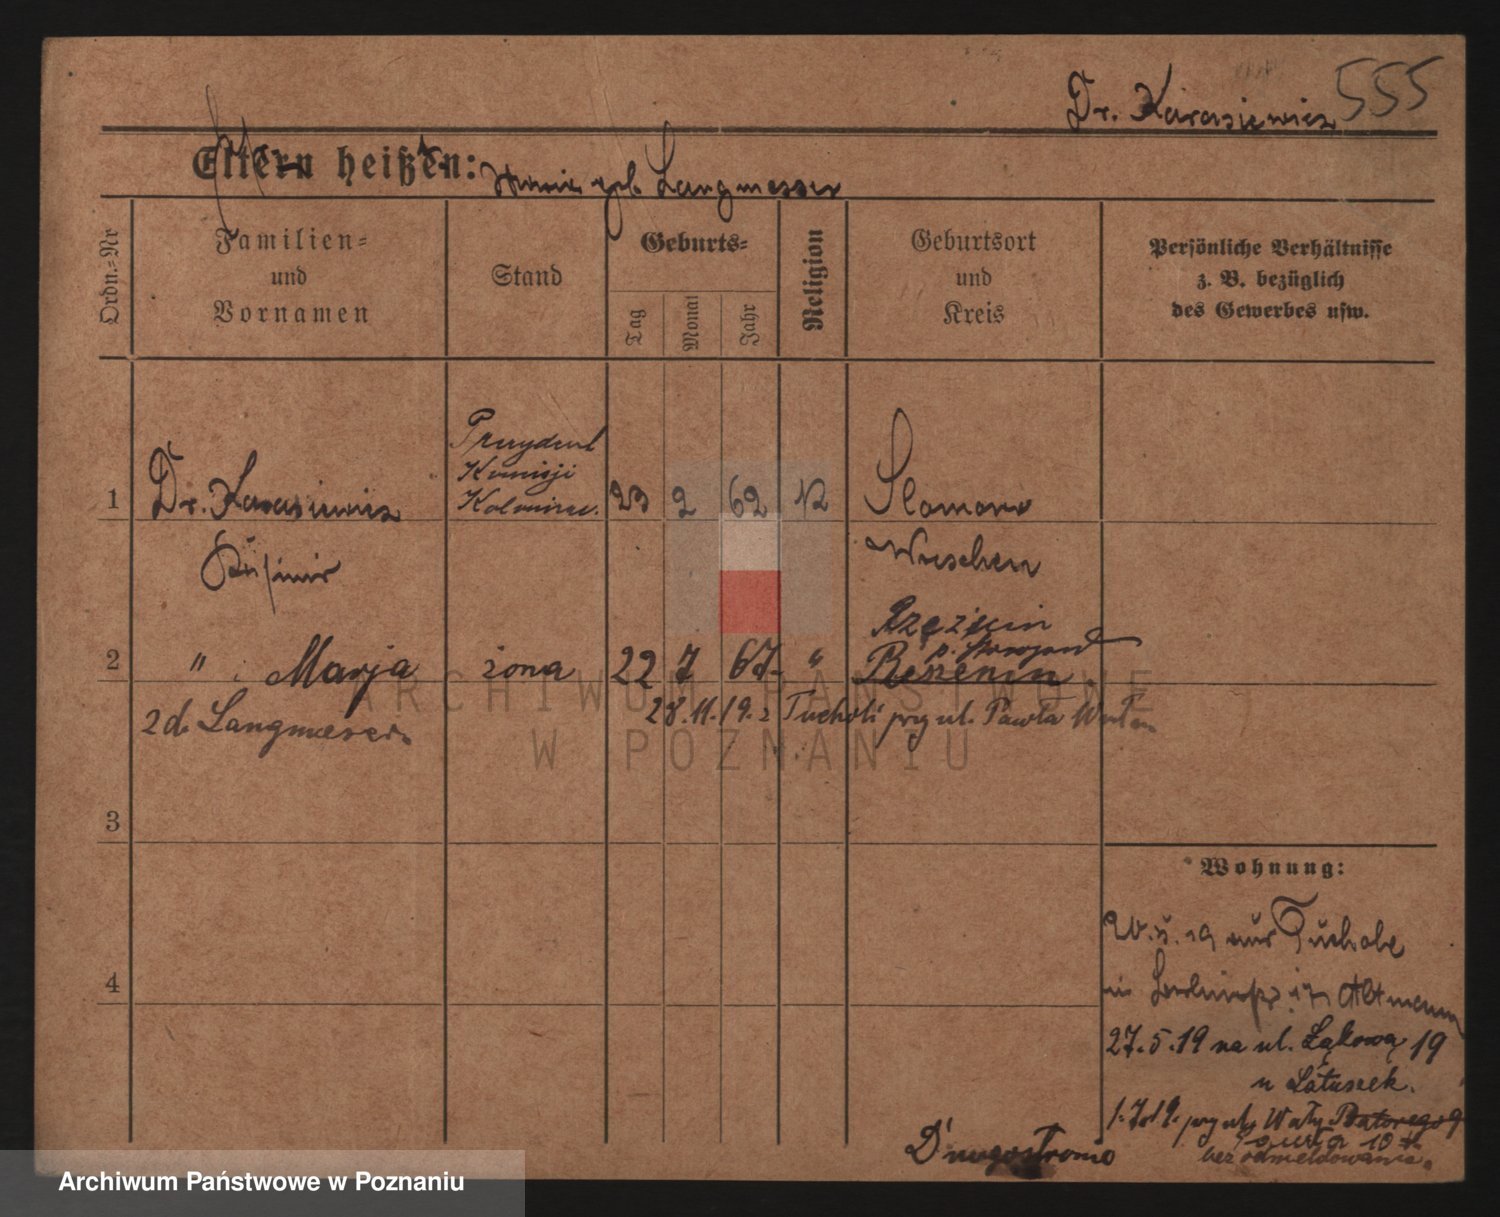 Dr. Karasiewicz 555
Eltern heißen: Marie geb. Langmesser
Ordn.=Nr
Familien=
und
Vornamen
Stand
Geburts=
Tag
Monat
Jahr
Religion
Geburtsort
und
Kreis
Persönliche Verhältnisse
z. B. bezüglich
des Gewerbes usw.
1 Dr. Karasiewicz
Kasimir
Prezydent
Komisji
23 2 62
Wreschen
2 " Marja żona 22 7 67 "
Langmesser
28.11.19. z Tucholi przy ul. Pawła
3
4
Wohnung:
19 aus Tuchole
in 17 Altmann
27.5.19 na ul. Łąkową 19
u Łatuszek.
1.7.19. przy ul. Wały Batorego 9
10
bez odmeldowania.
ARCHIWUM PAŃSTWOWE
W POZNANIU
Archiwum Państwowe w Poznaniu